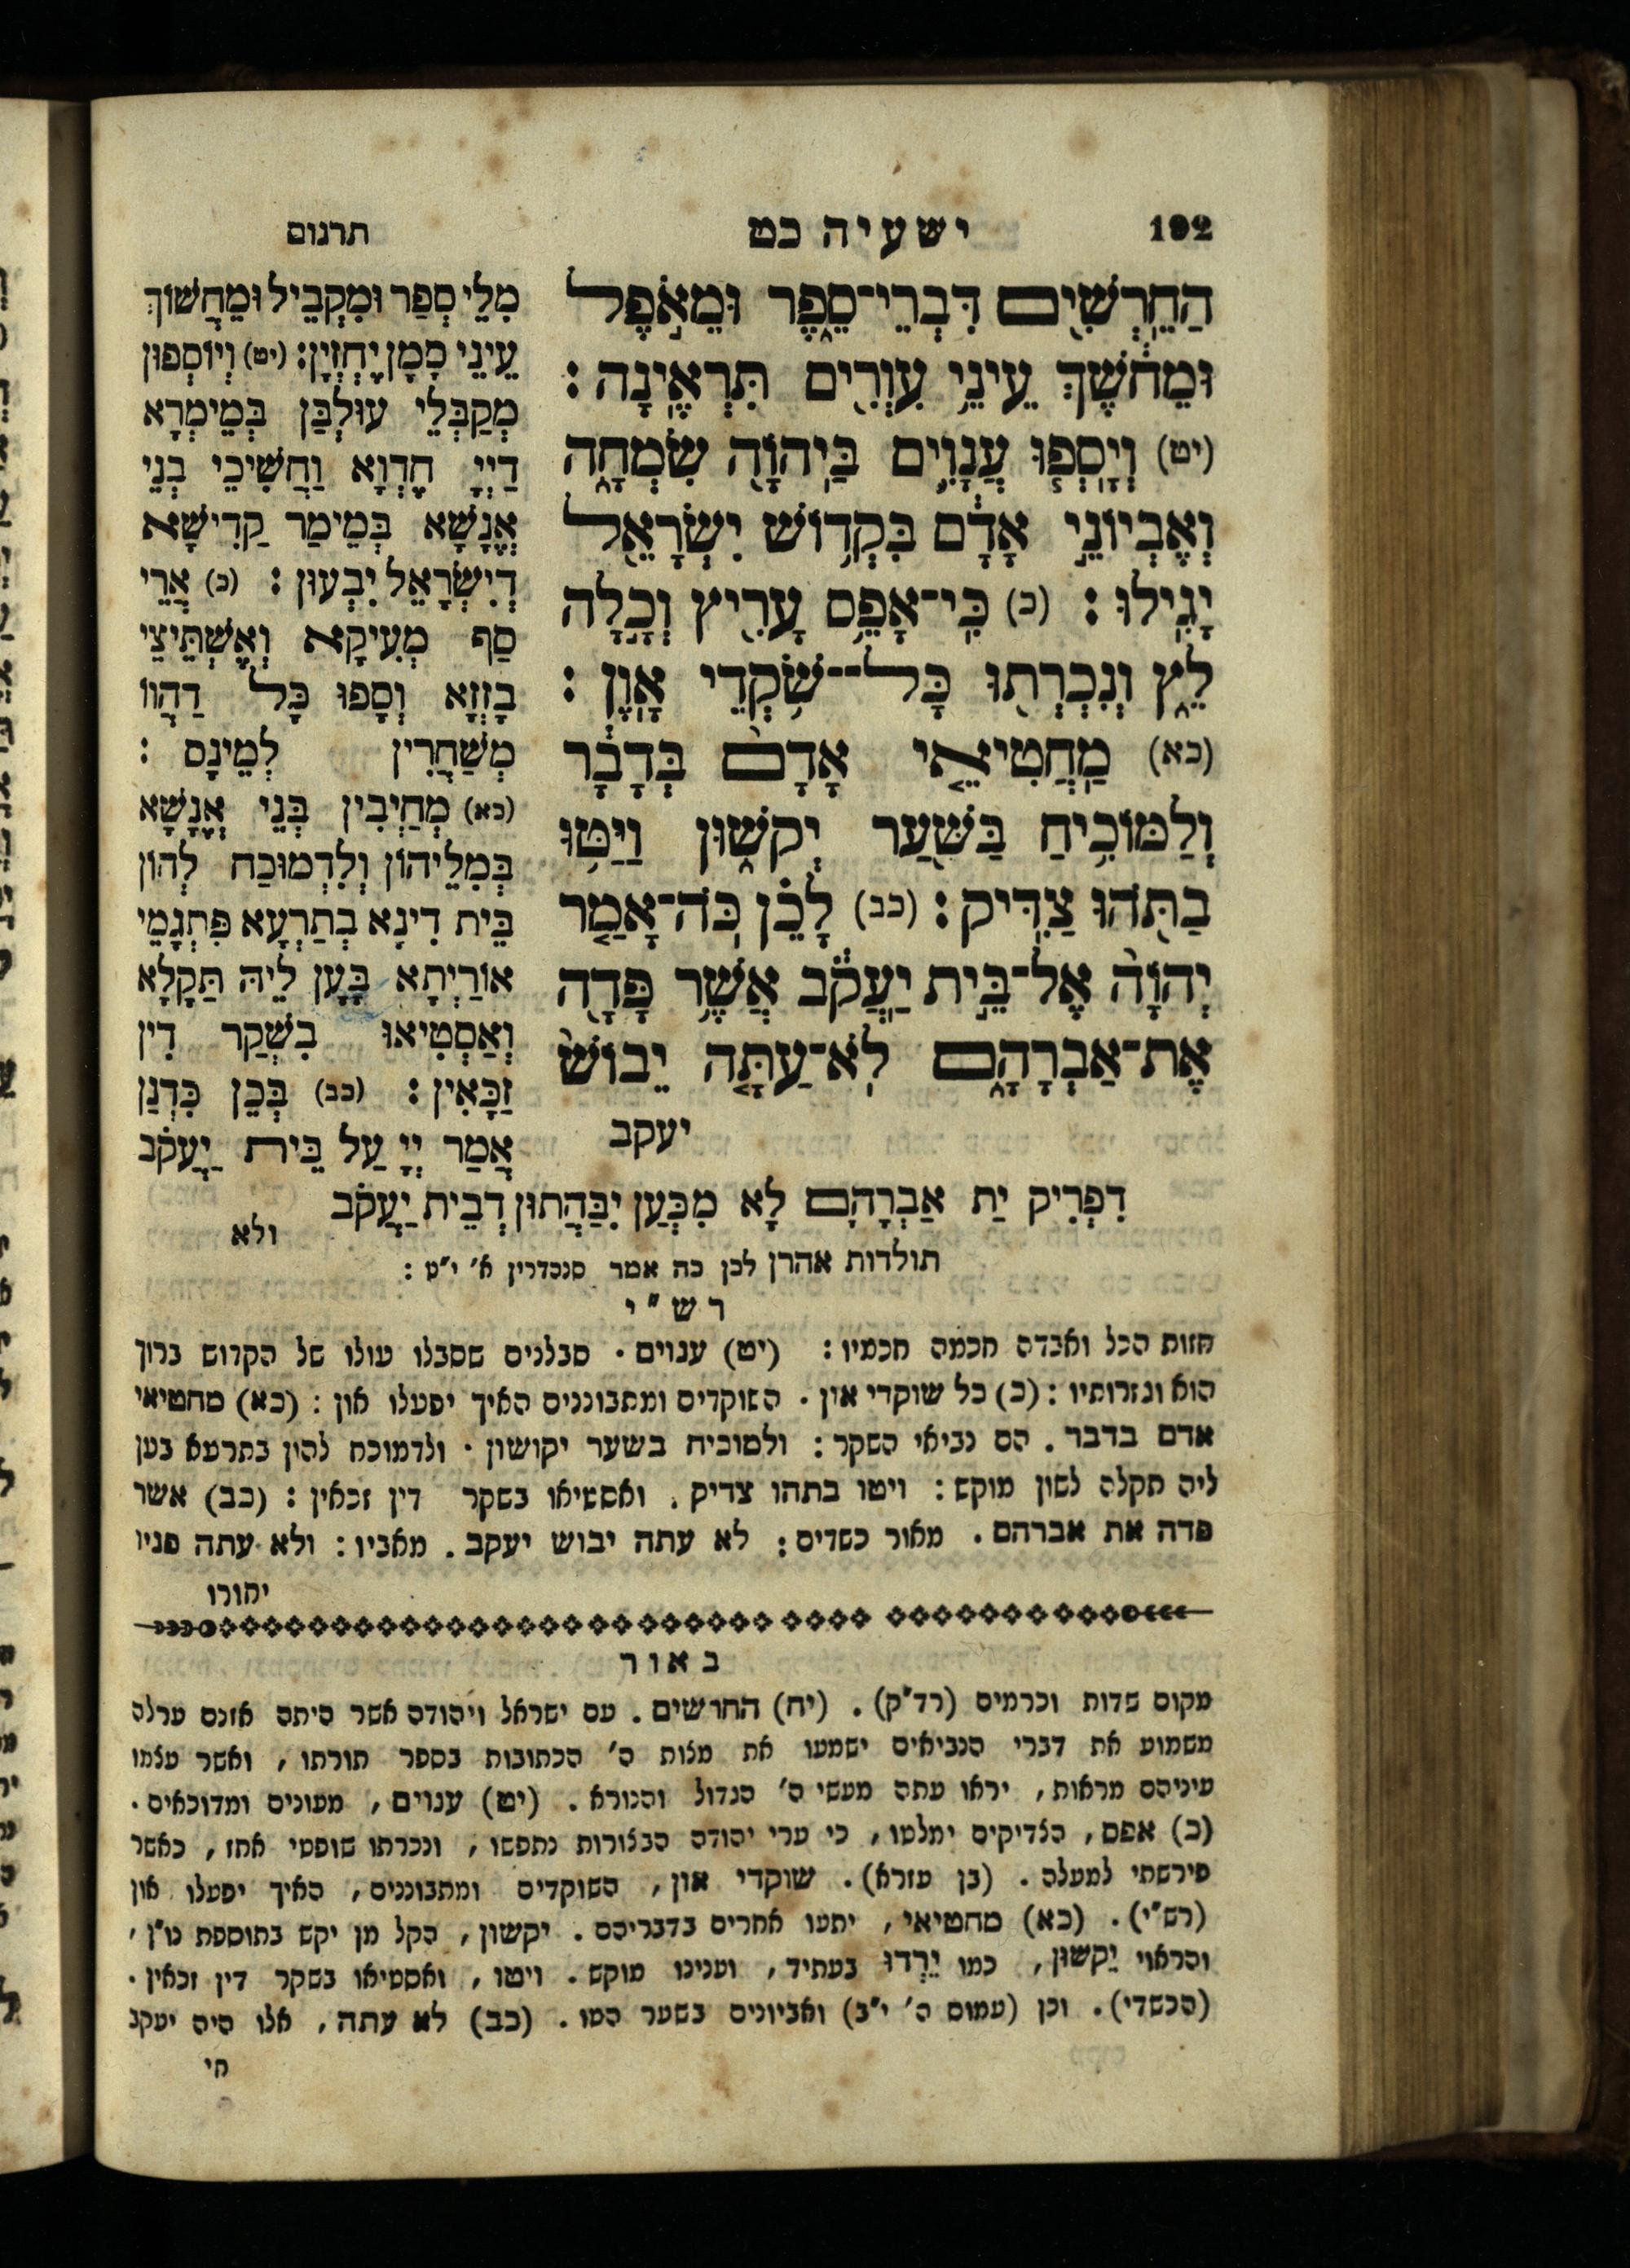 192
ישעיה כט
תרגום
הַחֵרְשִׁ֖ים דִּבְרֵי־סֵ֑פֶר וּמֵאֹ֣פֶל
וּמֵחֹ֔שֶׁךְ עֵינֵ֥י עִוְרִ֖ים תִּרְאֶֽינָה׃
(יט) וְיָסְפ֧וּ עֲנָוִ֛ים בַּיהוָ֖ה שִׂמְחָ֑ה
וְאֶבְיוֹנֵ֣י אָדָ֔ם בִּקְד֥וֹשׁ יִשְׂרָאֵ֖ל
יָגִֽילוּ׃ (כ) כִּֽי־אָפֵ֥ס עָרִ֖יץ וְכָ֣לָה
לֵ֑ץ וְנִכְרְת֖וּ כָּל־שֹׁ֥קְדֵי אָֽוֶן׃
(כא) מַחֲטִיאֵ֤י אָדָם֙ בְּדָבָ֔ר
וְלַמּוֹכִ֥יחַ בַּשַּׁ֖עַר יְקֹשׁ֑וּן וַיַּטּ֥וּ
בַתֹּ֖הוּ צַדִּֽיק׃ (כב) לָכֵ֗ן כֹּֽה־אָמַ֤ר
יְהוָה֙ אֶל־בֵּ֣ית יַֽעֲקֹ֔ב אֲשֶׁ֥ר פָּדָ֖ה
אֶת־אַבְרָהָ֑ם לֹֽא־עַתָּ֤ה יֵבוֹשׁ֙
יעקב
מִלֵּי סְפַר וּמִקְבֵיל וּמֵחֲשׁוֹךְ
עֵינֵי סָמָן יֶחְזְיָן׃ (יט) וְיוֹסְפוּן
מְקַבְּלֵי עוּלְבַּן בְּמֵימְרָא
דַיְיָ חֶדְוָא וַחֲשִׁיכֵי בְנֵי
אֱנָשָׁא בְּמֵימַר קַדִישָׁא
דְיִשְׂרָאֵל יִבְעוּן׃ (כ) אֲרֵי
סַף מְעִיקָא וְאֶשְׁתֵּיצֵי
בָזְזָא וְסָפוּ כָּל דַהֲווֹ
מְשַׁחֲרִין לְמֵינָס׃
(כא) מְחַיְבִין בְּנֵי אֱנָשָׁא
בְּמִלֵיהוֹן וְלִדְמוּכַח לְהוֹן
בֵּית דִינָא בְתַרְעָא פִּתְגָמֵי
אוֹרַיְתָא בָּעַן לֵיהּ תַּקָלָא
וְאַסְטִיאוּ בִשְׁקַר דִין
זַכָּאִין׃ (כב) בְּכֵן כִּדְנַן
אֲמַר יְיָ עַל בֵּית יַעֲקֹב
דִפְרִיק יַת אַבְרָהָם לָא מִכְּעַן יִבַּהֲתוּן דְבֵית יַעֲקֹב
ולא
תולדות אהרן לכן כה אמר סנהדרין א' י"ט :
רש"י
חזות הכל ואבדה חכמת חכמיו : (יט) ענוים . סבלנים שסבלו עולו של הקדוש ברוך
הוא וגזרותיו : (כ) כל שוקדי און . השוקדים ומתבוננים האיך יפעלו און : (כא) מחטיאי
אדם בדבר . הם נביאי השקר : ולמוכיח בשער יקושון . ולדמוכח להון בתרעא בען
ליה תקלה לשון מוקש : ויטו בתהו צדיק . ואסטיאו בשקר דין זכאין : (כב) אשר
פדה את אברהם . מאור כשדים : לא עתה יבוש יעקב . מאביו : ולא עתה פניו
יחורו
באור
מקום שדות וכרמים (רד"ק) . (יח) החרשים . עם ישראל ויהודה אשר היתה אזנם ערלה
משמוע את דברי הנביאים ישמעו את מצות ה' הכתובות בספר תורתו , ואשר עצמו
עיניהם מראות , יראו עתה מעשי ה' הגדול והנורא . (יט) ענוים , מעונים ומדוכאים .
(כ) אפס , הצדיקים ימלטו , כי ערי יהודה הבצורות נתפשו , ונכרתו שופטי אחז , כאשר
פירשתי למעלה . (בן עזרא) . שוקדי און , השוקדים ומתבוננים , האיך יפעלו און
(רש"י) . (כא) מחטיאי , יתעו אחרים בדבריהם . יקשון , הקל מן יקש בתוספת נו"ן ,
והראוי יֵקְשׁוּן , כמו יֵרְדוּ בעתיד , ועניגו מוקש . ויטו , ואסטיאו בשקר דין זכאין .
(הכשדי) . וכן (עמוס ה' י"ב) ואביונים בשער הטו . (כב) לא עתה , אלו היה יעקב
חי